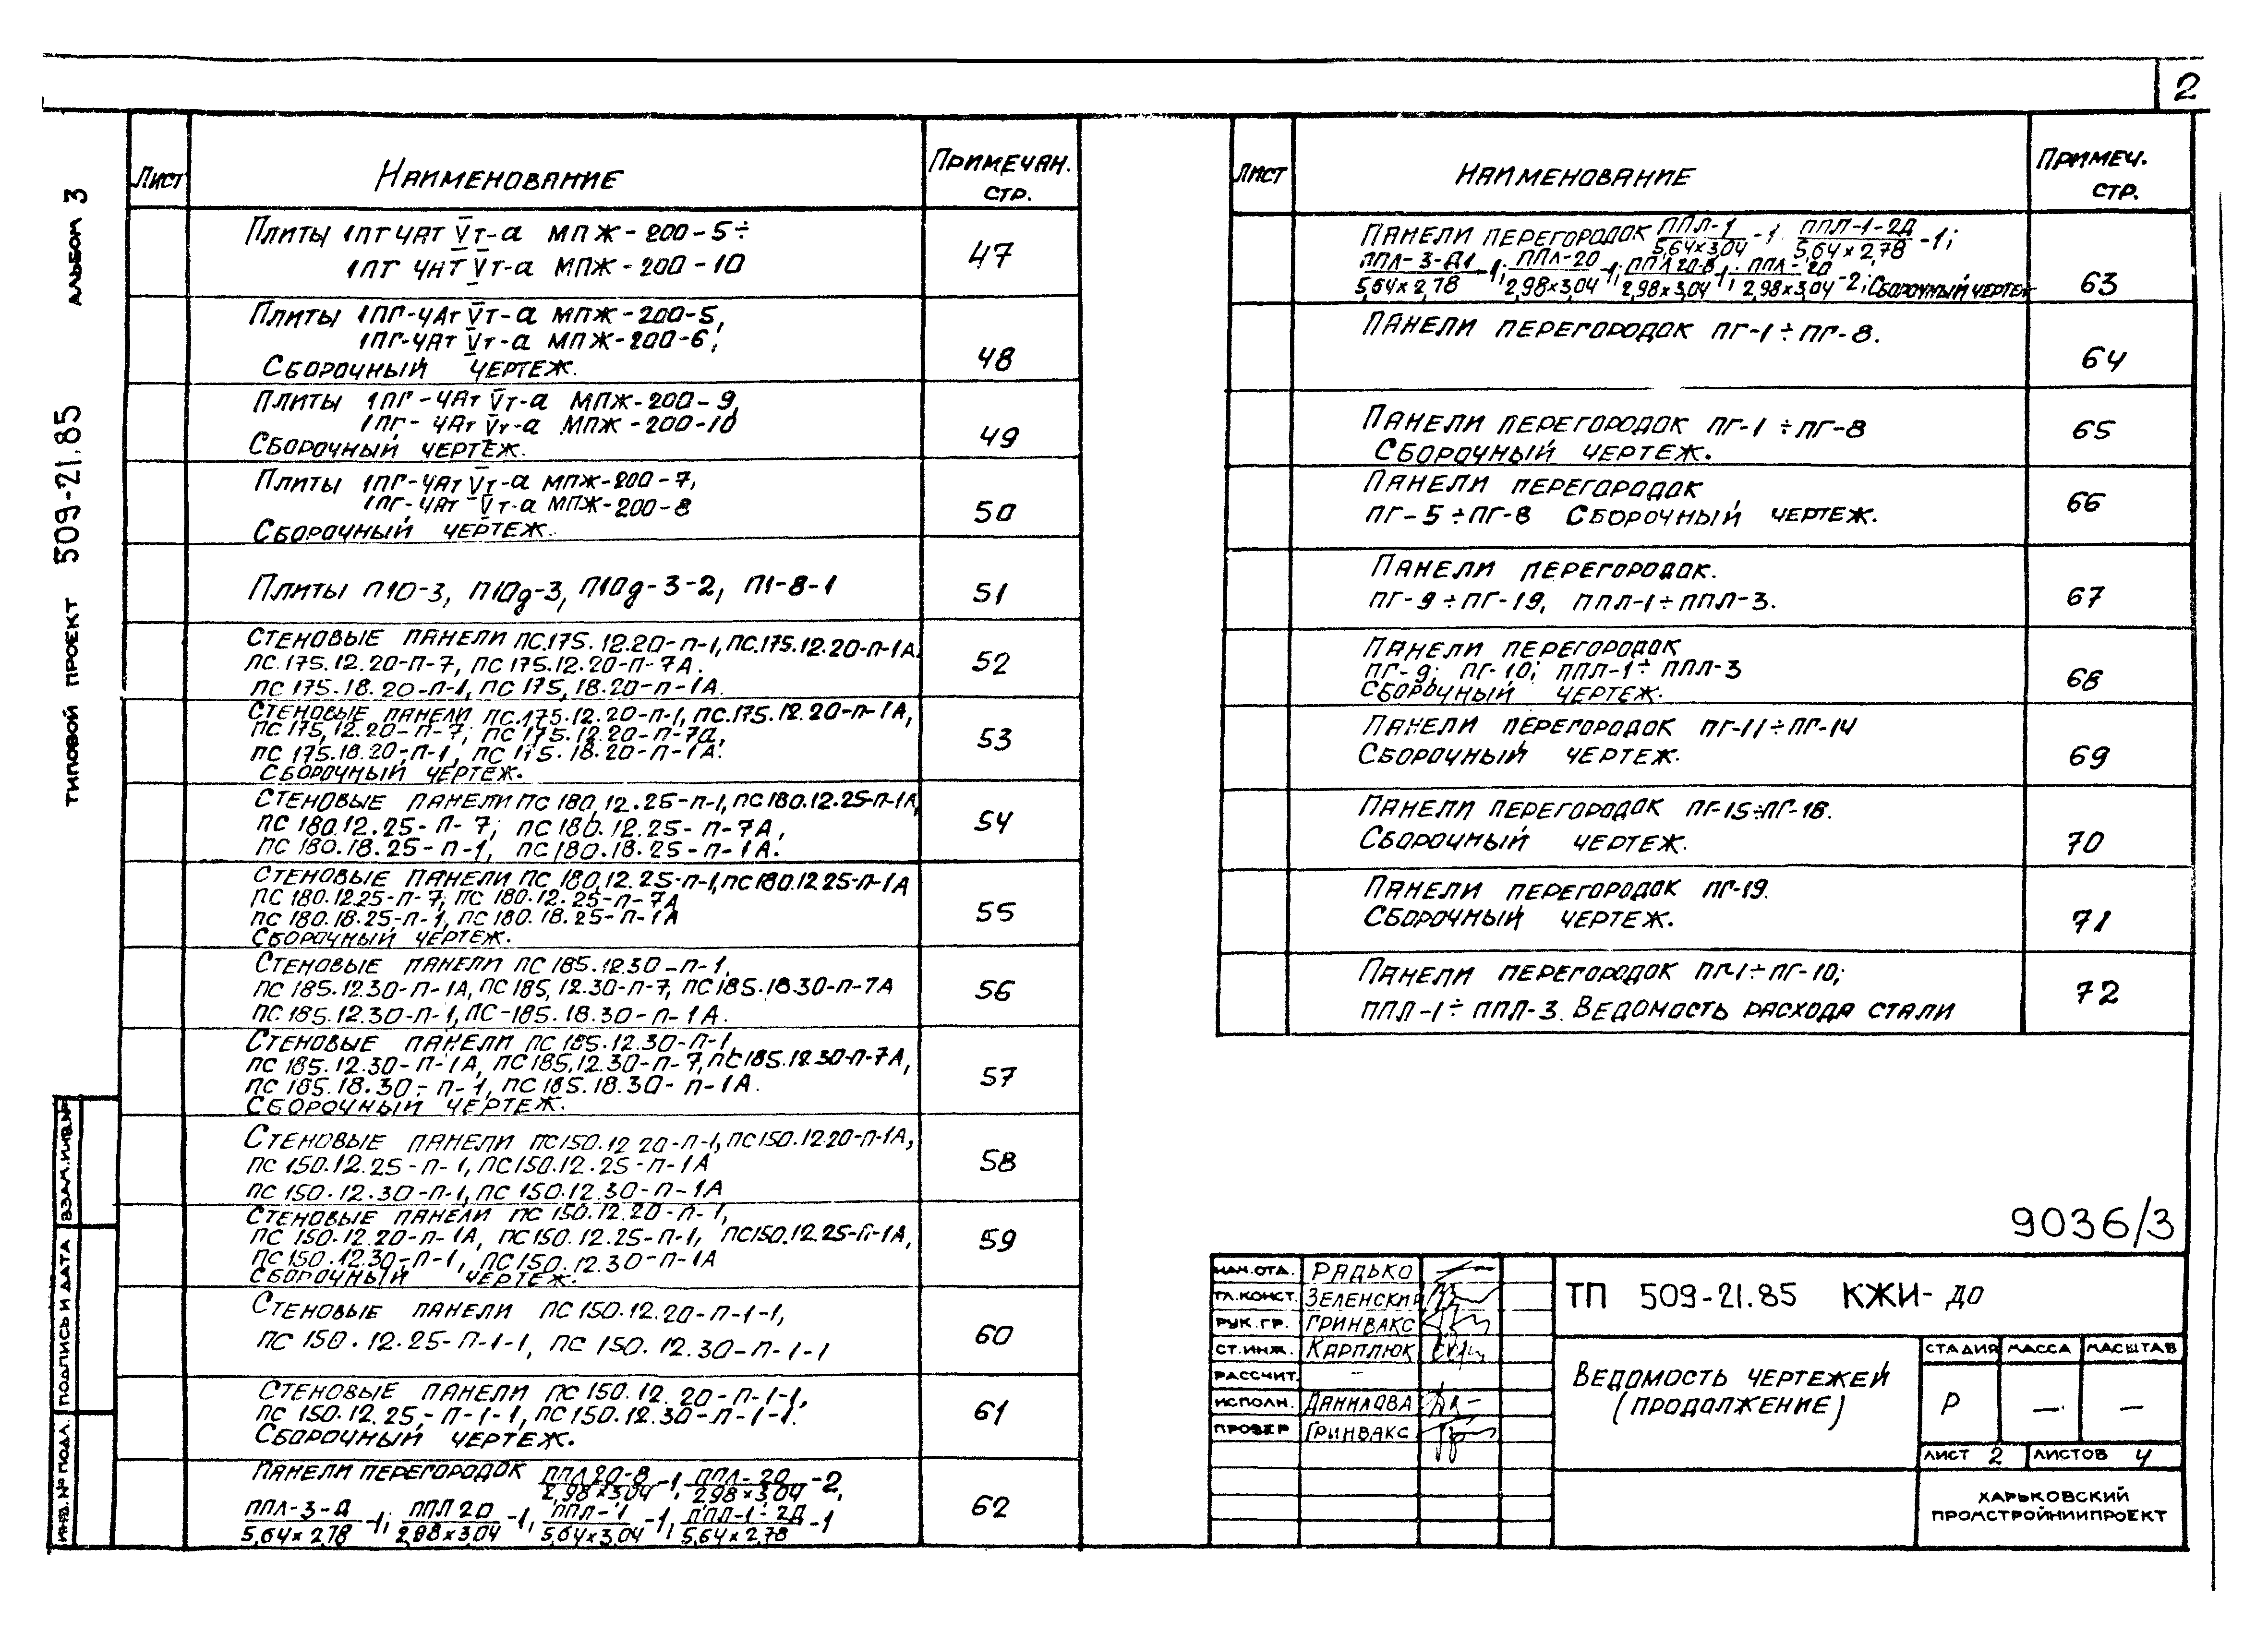 2
ТИПОВОЙ ПРОЕКТ 509-21.85 АЛЬБОМ 3
ЛИСТ НАИМЕНОВАНИЕ ПРИМЕЧАН. СТР.
ПЛИТЫ 1ПГ ЧАт Vт-а МПЖ-200-5÷
1ПГ ЧНТ Vт-а МПЖ-200-10
47
ПЛИТЫ 1ПГ-ЧАт Vт-а МПЖ-200-5,
1ПГ-ЧАт Vт-а МПЖ-200-6;
СБОРОЧНЫЙ ЧЕРТЕЖ.
48
ПЛИТЫ 1ПГ-ЧАт Vт-а МПЖ-200-9,
1ПГ-ЧАт Vт-а МПЖ-200-10
СБОРОЧНЫЙ ЧЕРТЕЖ.
49
ПЛИТЫ 1ПГ-ЧАт Vт-а МПЖ-200-7,
1ПГ-ЧАт Vт-а МПЖ-200-8
СБОРОЧНЫЙ ЧЕРТЕЖ.
50
ПЛИТЫ П10-3, П10д-3, П10д-3-2, П1-8-1
51
СТЕНОВЫЕ ПАНЕЛИ ПС.175.12.20-П-1, ПС.175.12.20-П-1А.
ПС.175.12.20-П-7, ПС 175.12.20-П-7А.
ПС 175.18.20-П-1, ПС 175,18.20-П-1А.
52
СТЕНОВЫЕ ПАНЕЛИ ПС.175.12.20-П-1, ПС.175.12.20-П-1А,
ПС 175,12.20-П-7; ПС 175.12.20-П-7а,
ПС 175.18.20-П-1, ПС 175.18.20-П-1А.
СБОРОЧНЫЙ ЧЕРТЕЖ.
53
СТЕНОВЫЕ ПАНЕЛИ ПС 180,12.25-П-1, ПС 180.12.25-П-1А,
ПС 180.12.25-П-7; ПС 180.12.25-П-7А,
ПС 180.18.25-П-1, ПС 180.18.25-П-1А.
54
СТЕНОВЫЕ ПАНЕЛИ ПС 180,12.25-П-1, ПС 180.12 25-П-1А
ПС 180.1225-П-7, ПС 180.12.25-П-7А
ПС 180.18.25-П-1, ПС 180.18.25-П-1А
СБОРОЧНЫЙ ЧЕРТЕЖ.
55
СТЕНОВЫЕ ПАНЕЛИ ПС 185.12.30-П-1,
ПС 185.12.30-П-1А, ПС 185,12.30-П-7, ПС 185.18.30-П-7А
ПС 185.12.30-П-1, ПС-185.18.30-П-1А.
56
СТЕНОВЫЕ ПАНЕЛИ ПС 185.12.30-П-1,
ПС 185.12.30-П-1А, ПС 185,12.30-П-7, ПС 185.12.30-П-7А,
ПС 185.18.30-П-1, ПС 185.18.30-П-1А.
СБОРОЧНЫЙ ЧЕРТЕЖ.
57
СТЕНОВЫЕ ПАНЕЛИ ПС 150.12 20-П-1, ПС 150.12 20-П-1А,
ПС 150.12.25-П-1, ПС 150.12.25-П-1А
ПС 150.12.30-П-1, ПС 150.12.30-П-1А
58
СТЕНОВЫЕ ПАНЕЛИ ПС 150.12.20-П-1,
ПС 150.12.20-П-1А, ПС 150.12.25-П-1, ПС 150.12.25-П-1А,
ПС 150.12.30-П-1, ПС 150.12.30-П-1А
СБОРОЧНЫЙ ЧЕРТЕЖ.
59
СТЕНОВЫЕ ПАНЕЛИ ПС 150.12.20-П-1-1,
ПС 150.12.25-П-1-1, ПС 150.12.30-П-1-1
60
СТЕНОВЫЕ ПАНЕЛИ ПС 150.12.20-П-1-1,
ПС 150.12.25-П-1-1, ПС 150.12.30-П-1-1.
СБОРОЧНЫЙ ЧЕРТЕЖ.
61
ПАНЕЛИ ПЕРЕГОРОДОК ППЛ20-В/2,98×3,04-1, ППЛ-20/2,98×3,04-2,
ППЛ-3-Д/5,64×2,78-1; ППЛ 20/2,98×3,04-1, ППЛ-1/5,64×3,04-1, ППЛ-1-2Д/5,64×2,78-1
62
ЛИСТ НАИМЕНОВАНИЕ ПРИМЕЧ. СТР.
ПАНЕЛИ ПЕРЕГОРОДОК ППЛ-1/5,64×3,04-1. ППЛ-1-2Д/5,64×2,78-1;
ППЛ-3-Д1/5,64×2,78-1; ППЛ-20/2,98×3,04-1; ППЛ20-В/2,98×3,04-1; ППЛ-20/2,98×3,04-2; СБОРОЧНЫЙ ЧЕРТЕЖ
63
ПАНЕЛИ ПЕРЕГОРОДОК ПГ-1÷ПГ-8.
64
ПАНЕЛИ ПЕРЕГОРОДОК ПГ-1÷ПГ-8
СБОРОЧНЫЙ ЧЕРТЕЖ.
65
ПАНЕЛИ ПЕРЕГОРОДОК
ПГ-5÷ПГ-8 СБОРОЧНЫЙ ЧЕРТЕЖ.
66
ПАНЕЛИ ПЕРЕГОРОДОК.
ПГ-9÷ПГ-19, ППЛ-1÷ППЛ-3.
67
ПАНЕЛИ ПЕРЕГОРОДОК
ПГ-9; ПГ-10; ППЛ-1÷ППЛ-3
СБОРОЧНЫЙ ЧЕРТЕЖ.
68
ПАНЕЛИ ПЕРЕГОРОДОК ПГ-11÷ПГ-14
СБОРОЧНЫЙ ЧЕРТЕЖ.
69
ПАНЕЛИ ПЕРЕГОРОДОК ПГ-15÷ПГ-18.
СБОРОЧНЫЙ ЧЕРТЕЖ.
70
ПАНЕЛИ ПЕРЕГОРОДОК ПГ-19.
СБОРОЧНЫЙ ЧЕРТЕЖ.
71
ПАНЕЛИ ПЕРЕГОРОДОК ПГ-1÷ПГ-10;
ППЛ-1÷ППЛ-3. ВЕДОМОСТЬ РАСХОДА СТАЛИ
72
9036/3
НАЧ.ОТД. РАДЬКО
ГЛ.КОНСТ. ЗЕЛЕНСКИЙ
РУК.ГР. ГРИНВАКС
СТ.ИНЖ. КАРПЛЮК
РАССЧИТ. -
ИСПОЛН. ДАНИЛОВА
ПРОВЕР ГРИНВАКС
ТП 509-21.85 КЖИ-ДО
ВЕДОМОСТЬ ЧЕРТЕЖЕЙ
(ПРОДОЛЖЕНИЕ)
СТАДИЯ МАССА МАСШТАВ
Р — —
ЛИСТ 2 ЛИСТОВ 4
ХАРЬКОВСКИЙ
ПРОМСТРОЙНИИПРОЕКТ
ИНВ.№ ПОДЛ. ПОДПИСЬ И ДАТА ВЗАМ.ИНВ.№